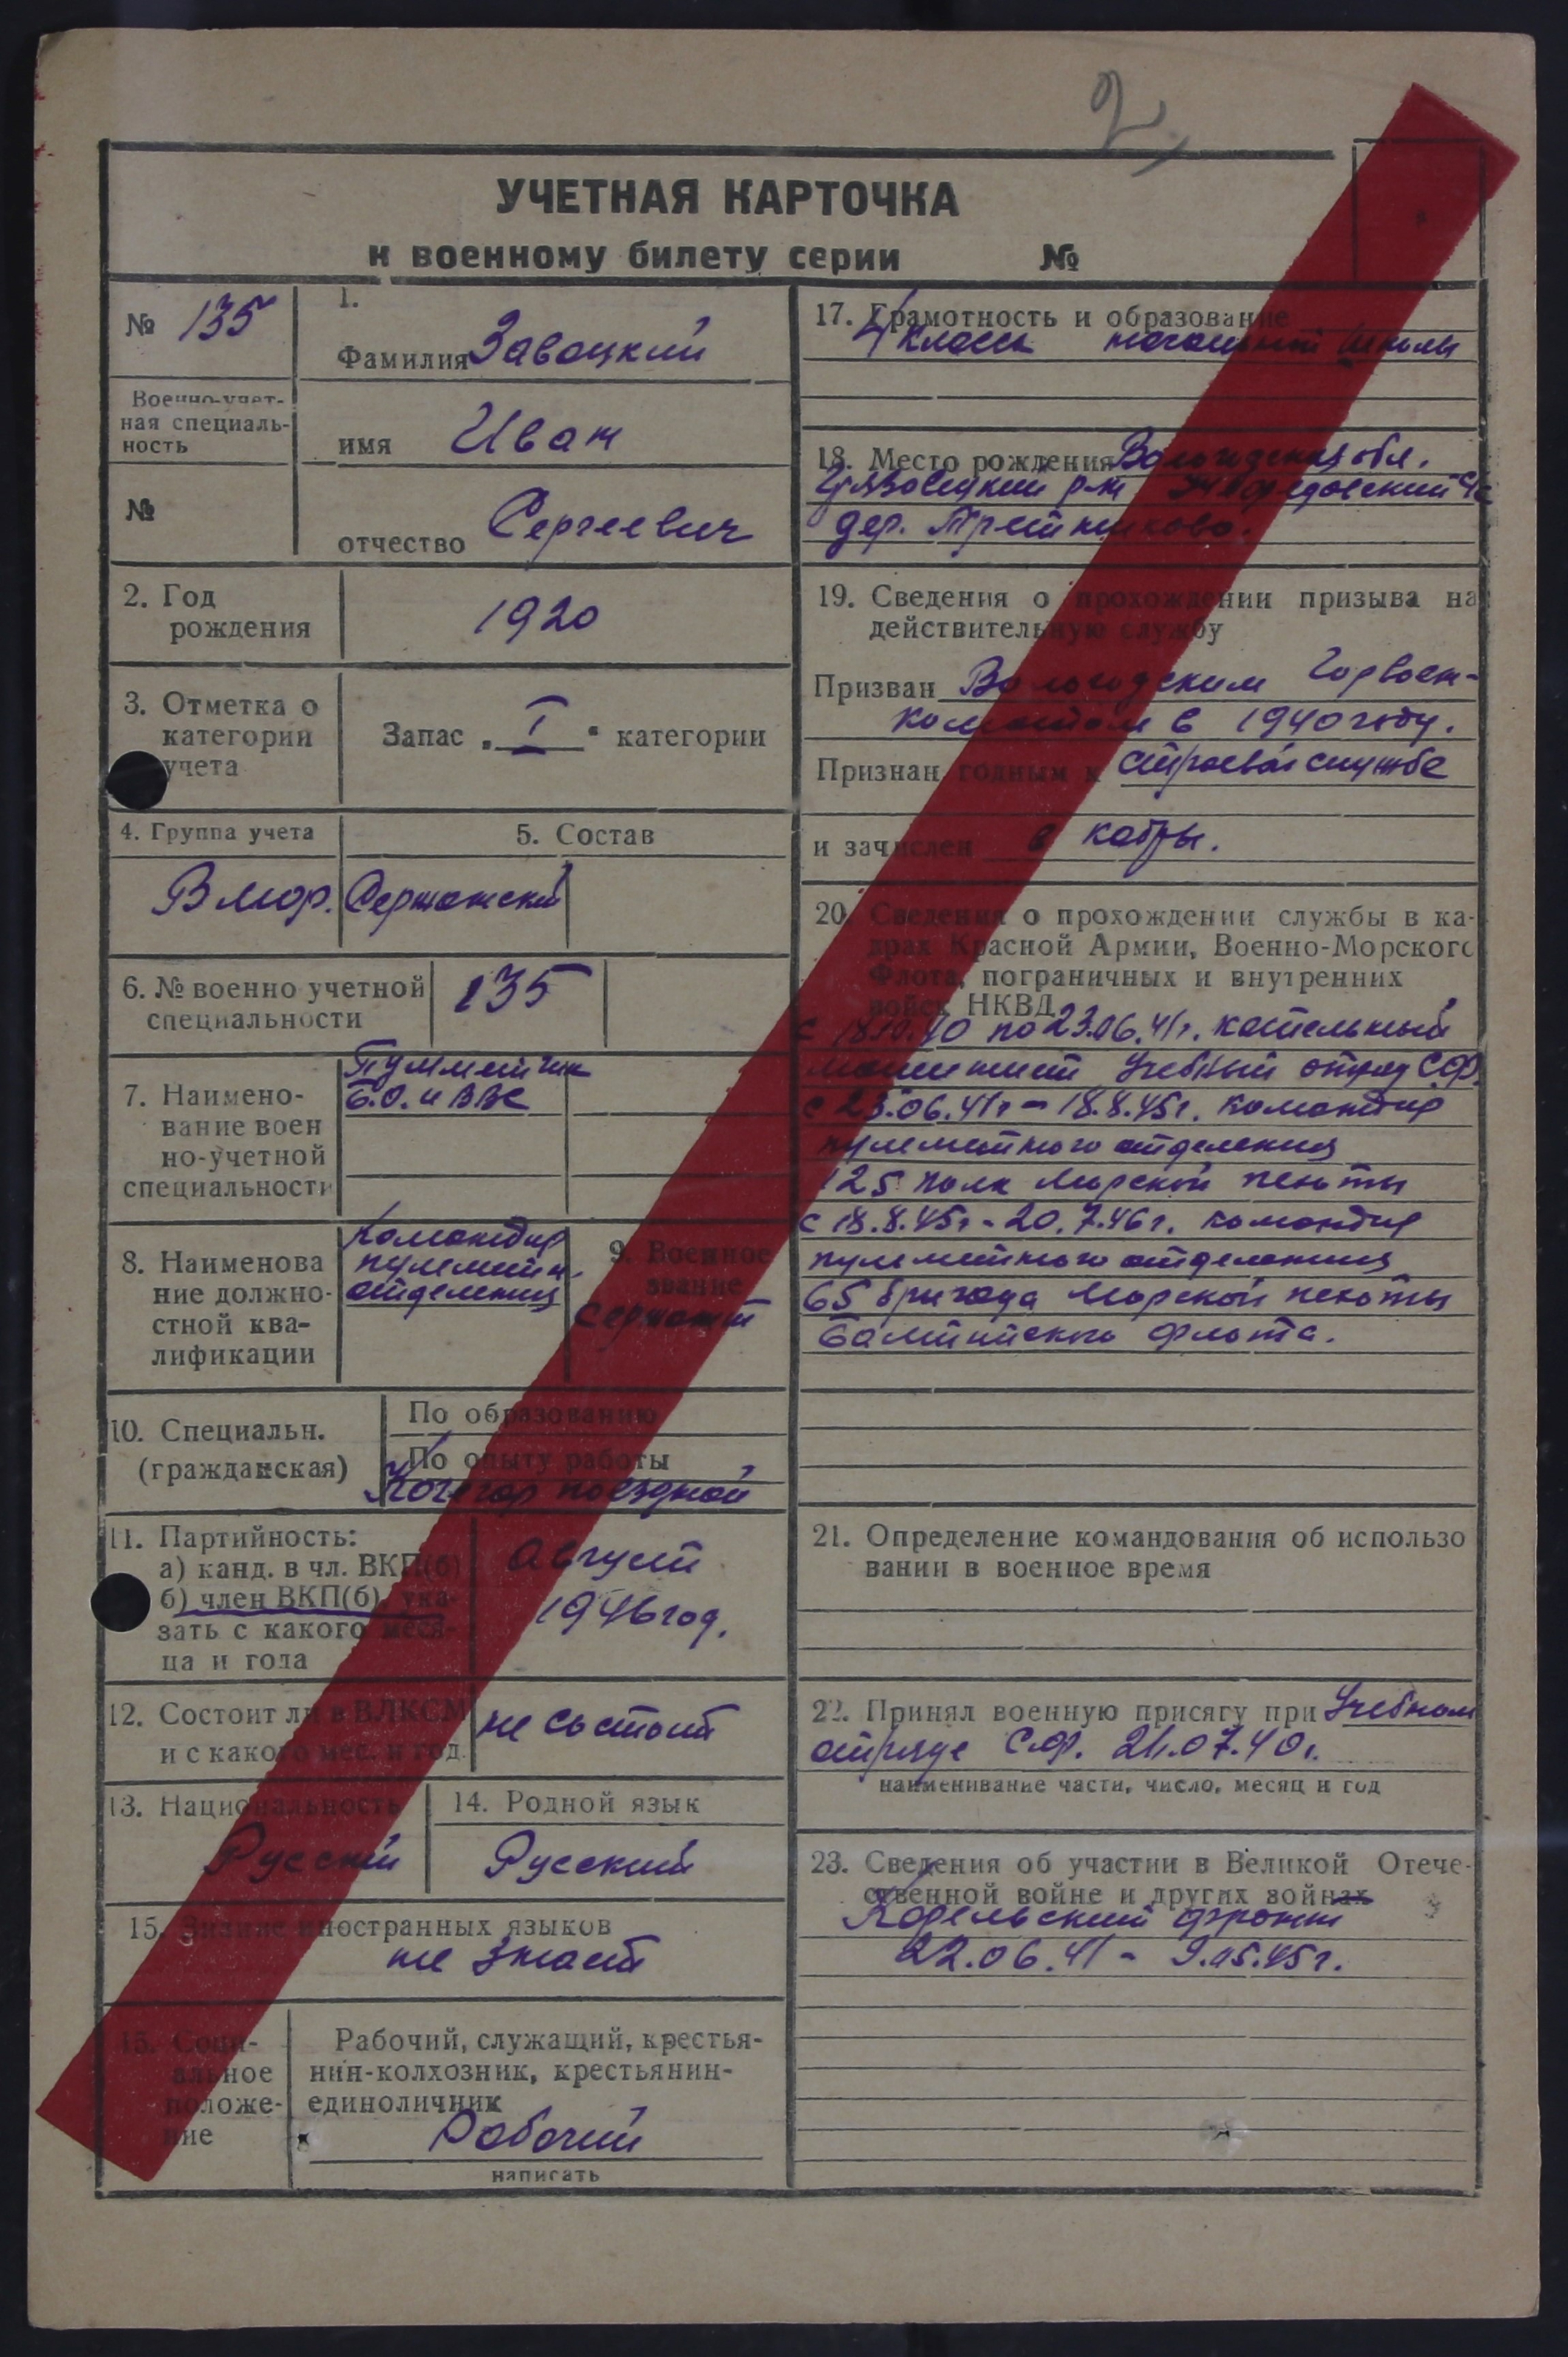 2
УЧЕТНАЯ КАРТОЧКА
к военному билету серии №
№ 135
Военно-учет-
ная специаль-
ность
№
1.
Фамилия Завацкий
имя Иван
отчество Сергеевич
2. Год
рождения
1920
3. Отметка о
категории
учета
Запас „ I " категории
4. Группа учета
В мор.
5. Состав
Сержанский
6. № военно учетной
специальности
135
7. Наимено-
вание воен
но-учетной
специальности
Пулеметчик
Б.О. и ВВС
8. Наименова
ние должно-
стной ква-
лификации
Командир
пулеметн.
отделения
9. Военное
звание
Сержант
10. Специальн.
(гражданская)
По образованию
По опыту работы
Кочегар поездной
11. Партийность:
а) канд. в чл. ВКП(б)
б) член ВКП(б), ука-
зать с какого меся-
ца и года
Август
1946 год.
12. Состоит ли в ВЛКСМ
и с какого мес. и год.
не состоит
13. Национальность
Русский
14. Родной язык
Русский
15. Знание иностранных языков
не знает
16. Соци-
альное
положе-
ние
Рабочий, служащий, крестья-
нин-колхозник, крестьянин-
единоличник
Рабочий
написать
17. Грамотность и образование
4 класса начальной школы
18. Место рождения Вологодская обл.
Грязовецкий р-н с/с
дер.
19. Сведения о прохождении призыва на
действительную службу
Призван Вологодским Горвоен-
коматом в 1940 году.
Признан годным к строевой службе
и зачислен в кадры.
20. Сведения о прохождении службы в ка-
драх Красной Армии, Военно-Морского
Флота, пограничных и внутренних
войск НКВД
с 18.10.40 по 23.06.41г. котельный
машинист Учебный отряд С.Ф.
с 23.06.41г - 18.8.45г. командир
пулеметного отделения
125 полк Морской пехоты
с 18.8.45г - 20.7.46г. командир
пулеметного отделения
65 бригада Морской пехоты
Балтийского флота.
21. Определение командования об использо
вании в военное время
22. Принял военную присягу при Учебном
отряде С.Ф. 21.07.40г.
наименивание части, число, месяц и год
23. Сведения об участии в Великой Отече-
ственной войне и других войнах
Карельский фронт
22.06.41 - 9.05.45г.